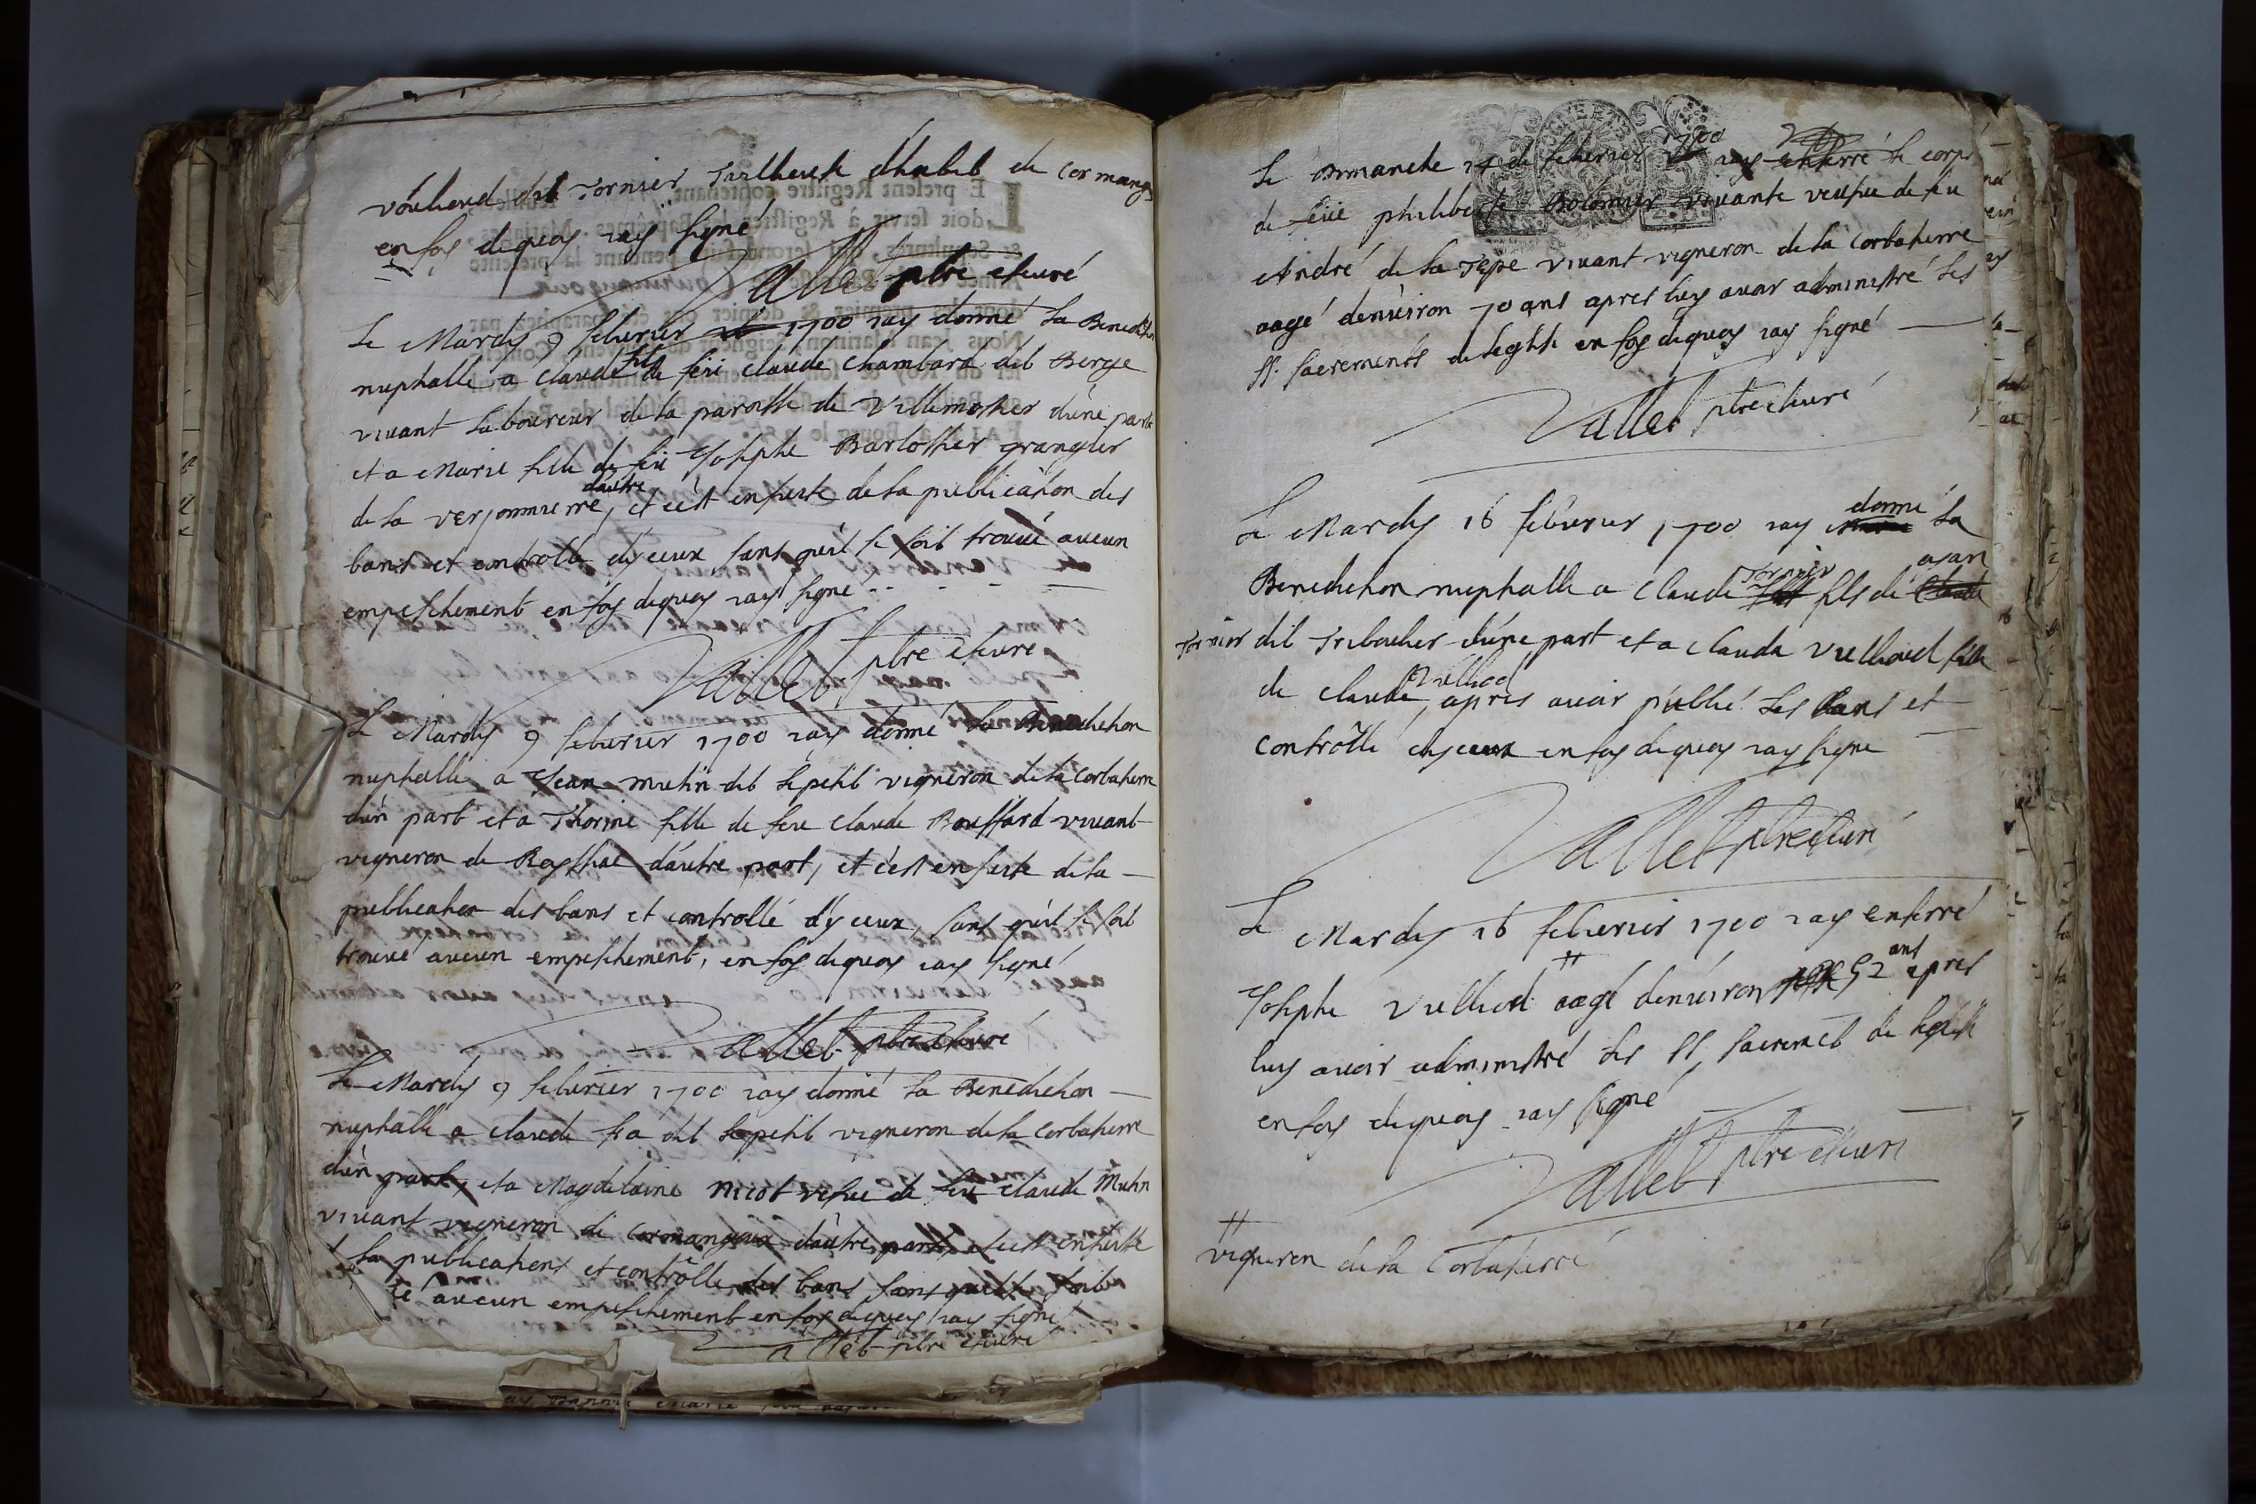 vouliend dit Tornier Tailleur dhabit de Cormangx
en foy dequoy iay signé
Vallet ptre et curé
Le Mardy 9 feburier 1700 iay donné la Benediction
nuptialle a claude fils de feu claude Chambard dit Berge
vivant laboureur de la paroisse de Villemostier d'une part
et a Marie fille de feu Josephe Barlottier grangier
de la verjonnierre d'autre, et c'est en suite de la publication des
bans et controlle d'yceux sans qu'il se soit trouvé aucun
empeschement en foy dequoy iay signé
Vallet ptre et curé
Le Mardy 9 feburier 1700 iay donné la Benediction
nuptialle a Jean mutin dit le petit vigneron de la Corbatierre
d'un part et a Thorine fille de feu claude Bouffard vivant
vigneron de d'autre part, et c'est en suite de la
publication des bans et controllé d'yceux, sans qu'il se soit
trouvé aucun empeschement, en foy dequoy iay signé
Vallet ptre et curé
Le Mardy 9 feburier 1700 iay donné la Benediction
nuptialle a claude dit le petit vigneron de la Corbatierre
d'un part, et a Magdelaine Nicot vefue de feu claude Mutin
vivant vigneron de Cormangoux d'autre part, et c'est en suitte
la publications et controlle des bans sans quil soit
aucun empeschement en foy dequoy iay signé
Vallet ptre et curé
Le Dimanche 14 de feburier 1700 iay enterré le corps
de feüe philiberte Bolomier vivante veufue de feu
André de la Teyse vivant vigneron de la Corbatierre
aagé d'enuiron 70 ans apres luy avoir administré les
SS. sacrements de leglise en foy dequoy iay signé
Vallet ptre et curé
Le Mardy 16 feburier 1700 iay donné la
Benediction nuptialle a Claude Tornier fils de
Tornier dit Tribacher d'une part et a Clauda Vulliod fille
de claude Vulliod, apres avoir publié les bans et
controlle d'yceux en foy dequoy iay signé
Vallet ptre et curé
Le Mardy 16 feburier 1700 iay enterré
Josephe Vulliod ++ aagé d'enuiron 52 ans apres
luy avoir administré les SS. sacremets de l'eglise
en foy dequoy iay signé
Vallet ptre et curé
++
vigneron de la Corbatierre